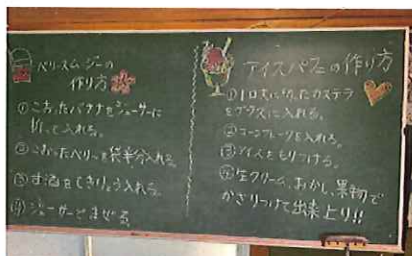 ベリースムージーの
作り方
①こおったバナナをジューサーに
入れる。
②こおったベリーを袋半分入れる。
③甘酒をてきりょう入れる。
④ジューサーでまぜる。
アイスパフェの作り方
①1口大に切ったカステラ
をグラスに入れる。
②コーンフレークを入れる。
③アイスをもりつける。
④生クリーム、おかし、果物で
かざりつけて出来上り!!